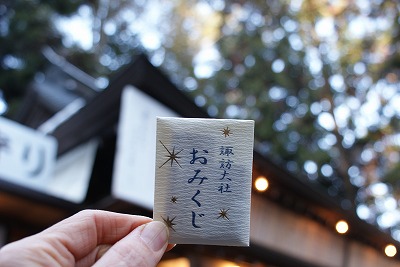 諏訪大社
おみくじ